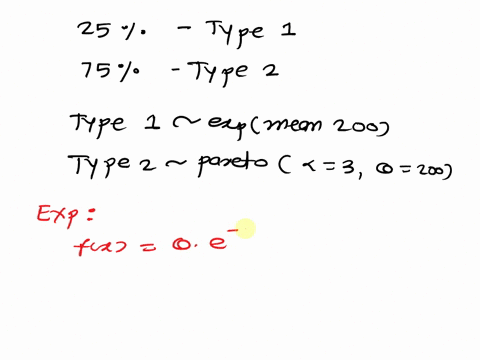 25% - Type 1
75% - Type 2
Type 1 ~ exp(mean 200)
Type 2 ~ pareto (α=3, θ=200)
Exp:
f(x) = θ. e^-